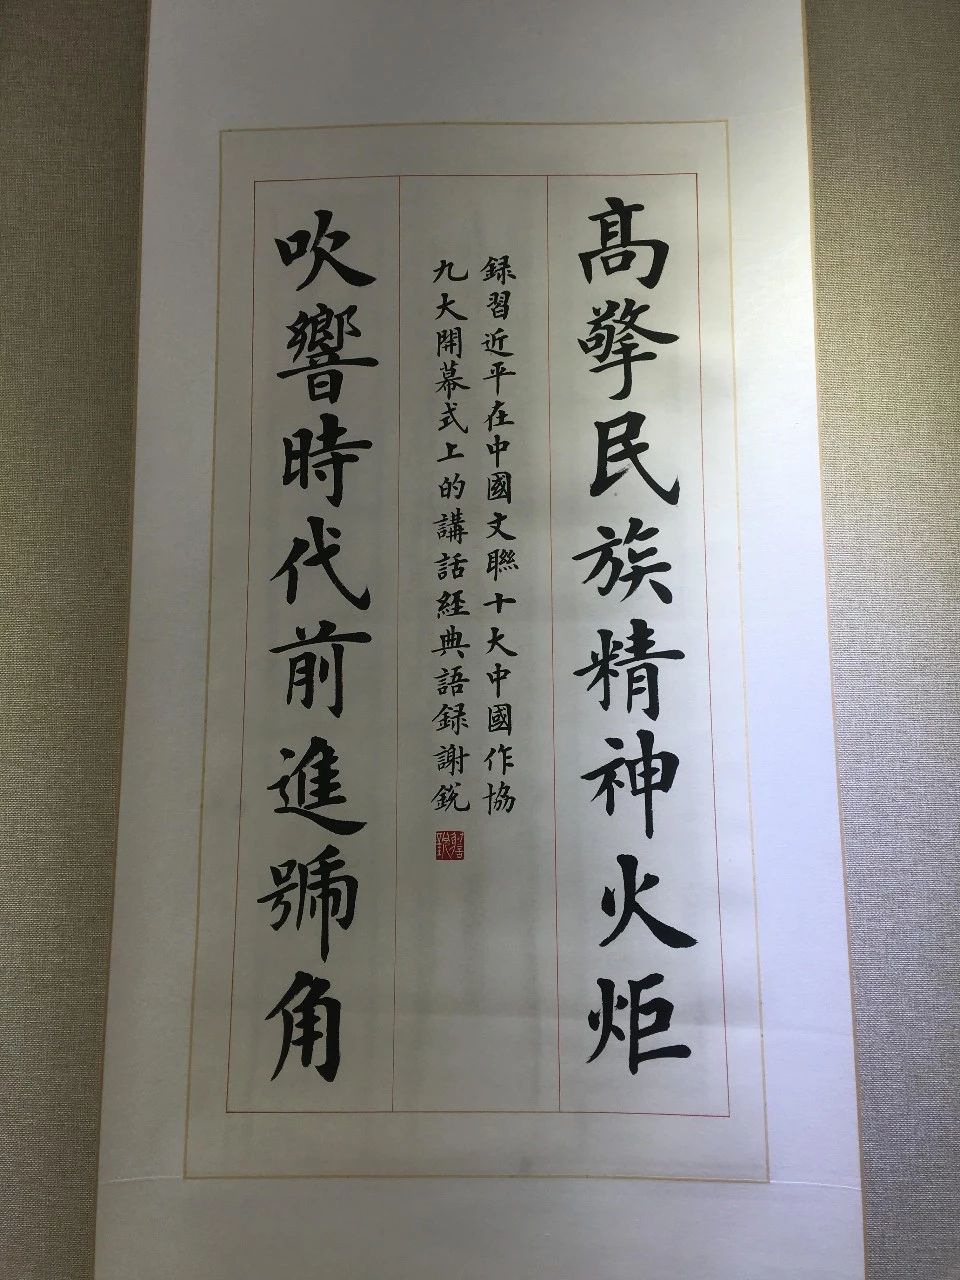 高擎民族精神火炬
録習近平在中國文聯十大中國作協
九大開幕式上的講話經典語録謝鋭
吹響時代前進號角